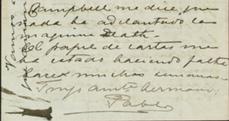 Campbell me dice que
nada ha adelantado la
maquina Death.
El papel de cartas me
ha estado haciendo falta
hace muchas semanas.
Tu affmo hermano,
Pablo